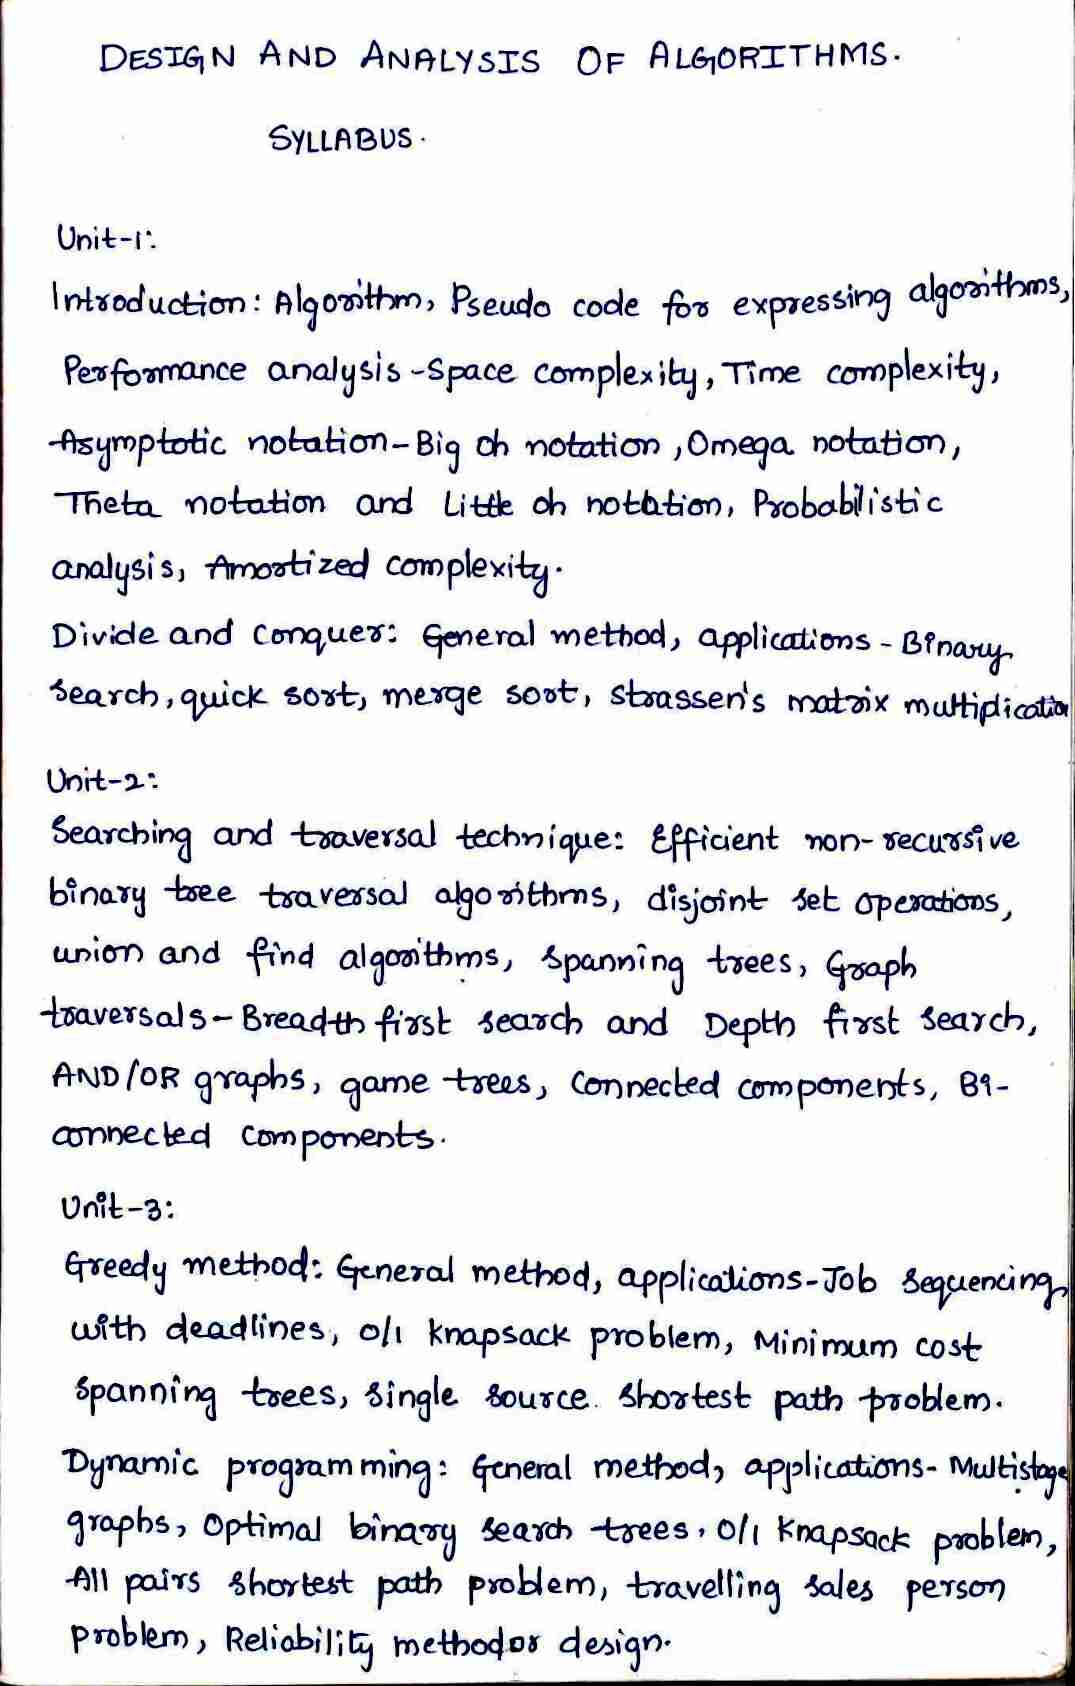 DESIGN AND ANALYSIS OF ALGORITHMS.
SYLLABUS.
Unit-1:
Introduction: Algorithm, Pseudo code for expressing algorithms,
Performance analysis-Space complexity, Time complexity,
Asymptotic notation-Big oh notation, Omega notation,
Theta notation and Little oh notation, Probabilistic
analysis, Amortized complexity.
Divide and conquer: General method, applications-Binary
search, quick sort, merge sort, strassen's matrix multiplication
Unit-2:
Searching and traversal technique: Efficient non-recursive
binary tree traversal algorithms, disjoint set operations,
union and find algorithms, spanning trees, Graph
traversals-Breadth first search and Depth first search,
AND/OR graphs, game trees, Connected components, Bi-
connected components.
Unit-3:
Greedy method: General method, applications-Job sequencing
with deadlines, 0/1 knapsack problem, Minimum cost
spanning trees, single source shortest path problem.
Dynamic programming: General method, applications-Multistage
graphs, Optimal binary search trees, 0/1 Knapsack problem,
All pairs shortest path problem, travelling sales person
problem, Reliability method or design.